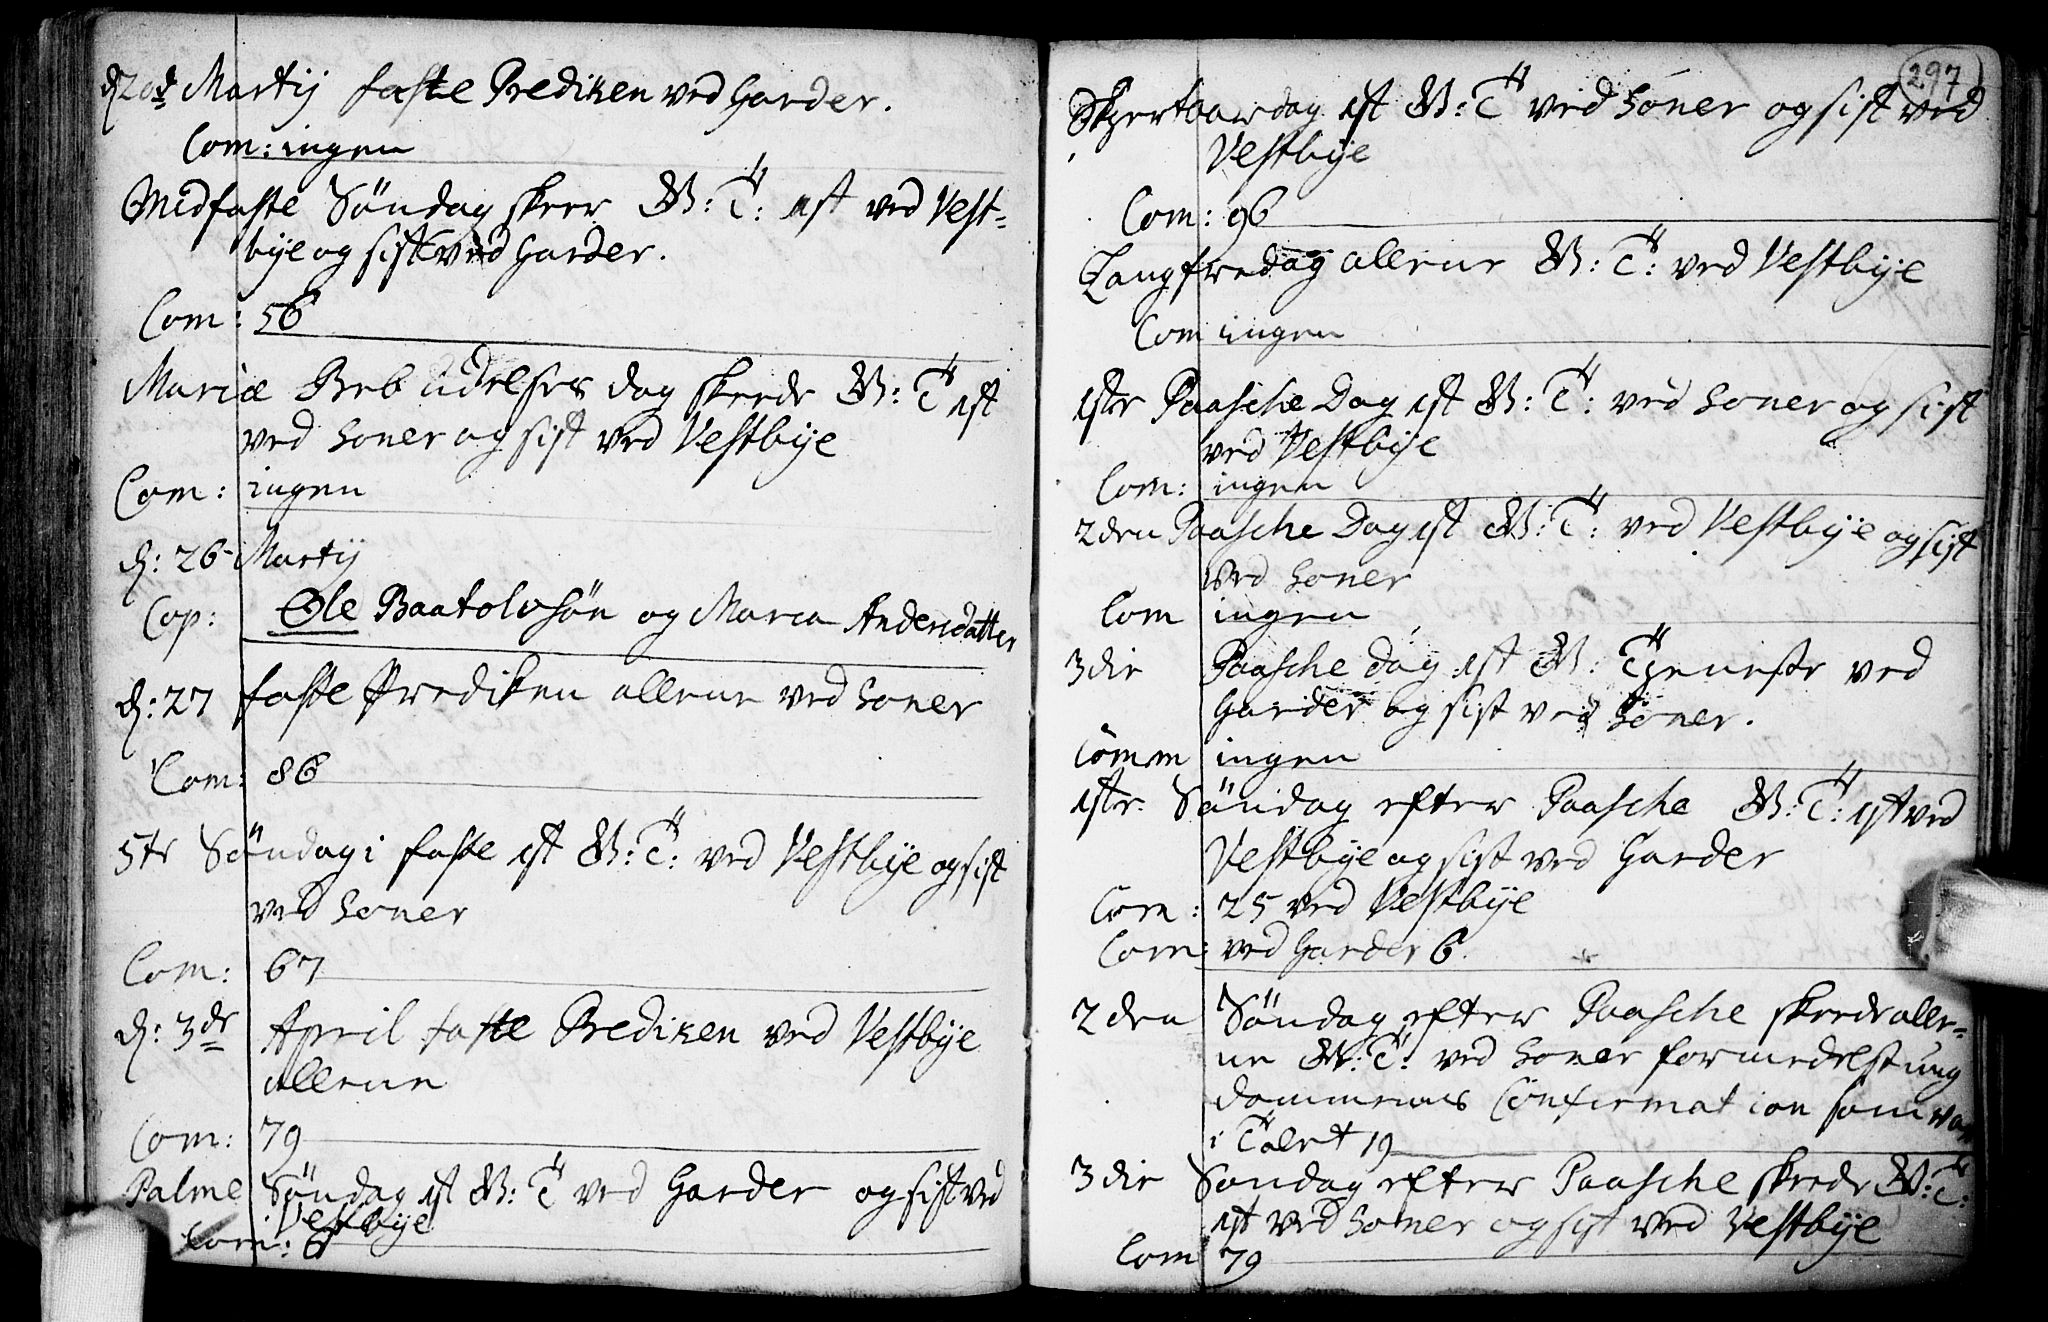 d 20d Martij faste Prediken ved Garder.
Com: ingen
Midfaste Söndag skeer G: T: 1st ved Vest-
bye og sist ved Garder.
Com: 56
Mariæ Bebudelses dag skeede G: T 1st
ved Soner og sist ved Vestbye
Com: ingen
d: 26 Martij
Cop: Ole Baatolvsön og Maria Andersdatter
d: 27 faste Prediken allene ved Soner
Com: 86
5te Söndag i faste 1st G: T: ved Vestbye og sist
ved Soner
Com: 67
d: 3de April faste Prediken ved Vestbye
allene
Com: 79
Palme Söndag 1st G: T ved Garder og sist ved
Vestbye
Com: 6
297
Skjertoorsdag 1st G: T ved Soner og sist ved
Vestbye
Com: 96
Langfredag allene G: T: ved Vestbye
Com ingen
1ste Paasche Dag 1st G: T: ved Soner og sist
ved Vestbye
Com: ingen
2den Paasche Dag 1st G: T: ved Vestbye og sist
ved Soner
Com ingen
3die Paasche dag 1st G: Tjeneste ved
Garder og sist ved Soner.
Comm ingen
1ste Söndag efter Paasche G: T: 1st ved
Vestbye og sist ved Garder
Com: 25 ved Vestbye
Com: ved Garder 6.
2den Söndag efter Paasche skeede alle-
ne G: T: ved Soner formedelst ung
dommens Confirmation som var
i Tallet 19
3die Söndag efter Paasche skeede G: T:
1st ved Soner og sist ved Vestbye
Com 79